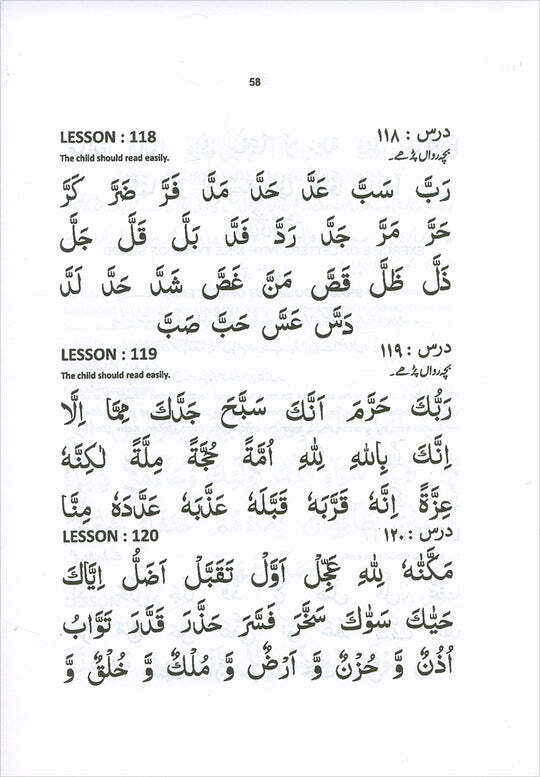 58
LESSON : 118 درس : ۱۱۸
The child should read easily. بچہ رواں پڑھے۔
رَبَّ سَبَّ عَدَّ حَدَّ مَدَّ فَرَّ ضَرَّ كَرَّ
حَرَّ مَرَّ جَدَّ رَدَّ فَدَّ بَلَّ قَلَّ جَلَّ
ذَلَّ ظَلَّ قَصَّ مَنَّ غَصَّ شَدَّ حَدَّ لَدَّ
دَسَّ عَسَّ حَبَّ صَبَّ
LESSON : 119 درس : ۱۱۹
The child should read easily. بچہ رواں پڑھے۔
رَبُّكَ حَرَّمَ اَنَّكَ سَبَّحَ جَدُّكَ مِمَّا اِلَّا
اِنَّكَ بِاللهِ لِلّٰهِ اُمَّةً حُجَّةً مِلَّةً لٰكِنَّهٗ
عِزَّةً اِنَّهٗ قَرَّبَهٗ قَبَّلَهٗ عَذَّبَهٗ عَدَّدَهٗ مِنَّا
LESSON : 120 درس : ۱۲۰
مَكَّنّٰهُ لِلّٰهِ عَجِّلْ اَوَّلُ تَقَبَّلْ اَضَلُّ اِيَّاكَ
حَيّٰكَ سَوّٰكَ سَخَّرَ فَسَّرَ حَذَّرَ قَدَّرَ تَوَّابُ
اُذُنٌ وَّ حُزْنٌ وَّ اَرْضٌ وَّ مُلْكٌ وَّ خُلْقٌ وَّ